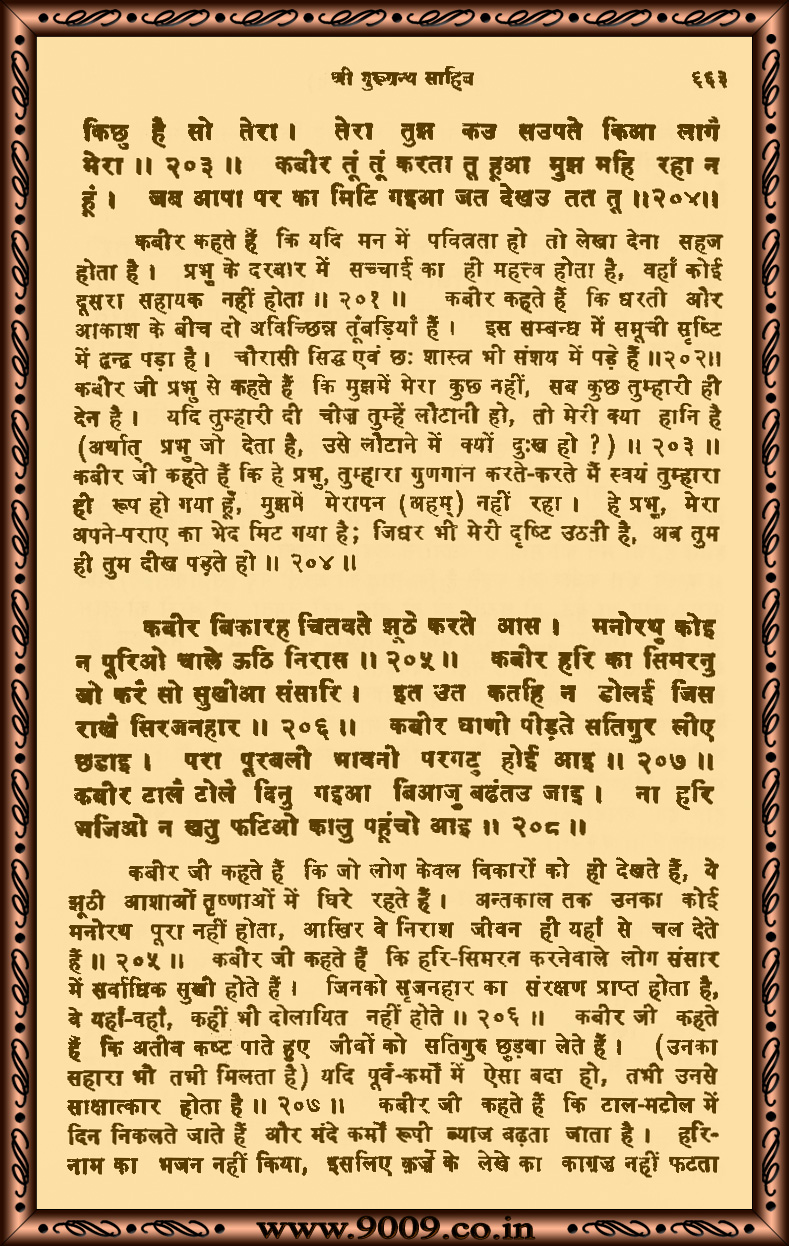 श्री गुरूग्रन्थ साहिब ६६३
किछु है सो तेरा । तेरा तुझ कउ सउपते किआ लागै
मेरा ॥ २०३ ॥ कबीर तूं तूं करता तू हूआ मुझ महि रहा न
हूं । जब आपा पर का मिटि गइआ जत देखउ तत तू ॥२०४॥
कबीर कहते हैं कि यदि मन में पवित्रता हो तो लेखा देना सहज
होता है । प्रभु के दरबार में सच्चाई का ही महत्त्व होता है, वहाँ कोई
दूसरा सहायक नहीं होता ॥ २०१ ॥ कबीर कहते हैं कि धरती और
आकाश के बीच दो अविच्छिन्न तूंबड़ियाँ हैं । इस सम्बन्ध में समूची सृष्टि
में द्वन्द्व पड़ा है । चौरासी सिद्ध एवं छः शास्त्र भी संशय में पड़े हैं ॥२०२॥
कबीर जी प्रभु से कहते हैं कि मुझमें मेरा कुछ नहीं, सब कुछ तुम्हारी ही
देन है । यदि तुम्हारी दी चीज़ तुम्हें लौटानी हो, तो मेरी क्या हानि है
(अर्थात् प्रभु जो देता है, उसे लौटाने में क्यों दुःख हो ?) ॥ २०३ ॥
कबीर जी कहते हैं कि हे प्रभु, तुम्हारा गुणगान करते-करते मैं स्वयं तुम्हारा
ही रूप हो गया हूँ, मुझमें मेरापन (अहम्) नहीं रहा । हे प्रभु, मेरा
अपने-पराए का भेद मिट गया है; जिधर भी मेरी दृष्टि उठती है, अब तुम
ही तुम दीख पड़ते हो ॥ २०४ ॥
कबीर बिकारह चितवते झूठे करते आस । मनोरथु कोइ
न पूरिओ चाले ऊठि निरास ॥ २०५ ॥ कबीर हरि का सिमरनु
जो करै सो सुखीआ संसारि । इत उत कतहि न डोलई जिस
राखै सिरजनहार ॥ २०६ ॥ कबीर घाणी पीड़ते सतिगुर लीए
छडाइ । परा पूरबली भावनी परगटु होई आइ ॥ २०७ ॥
कबीर टालै टोलै दिनु गइआ बिआजु बढंतउ जाइ । ना हरि
भजिओ न खतु फटिओ कालु पहूंचो आइ ॥ २०८ ॥
कबीर जी कहते हैं कि जो लोग केवल विकारों को ही देखते हैं, वे
झूठी आशाओं तृष्णाओं में घिरे रहते हैं । अन्तकाल तक उनका कोई
मनोरथ पूरा नहीं होता, आखिर वे निराश जीवन ही यहाँ से चल देते
हैं ॥ २०५ ॥ कबीर जी कहते हैं कि हरि-सिमरन करनेवाले लोग संसार
में सर्वाधिक सुखी होते हैं । जिनको सृजनहार का संरक्षण प्राप्त होता है,
वे यहाँ-वहाँ, कहीं भी दोलायित नहीं होते ॥ २०६ ॥ कबीर जी कहते
हैं कि अतीव कष्ट पाते हुए जीवों को सतिगुरु छुड़वा लेते हैं । (उनका
सहारा भी तभी मिलता है) यदि पूर्व-कर्मों में ऐसा बदा हो, तभी उनसे
साक्षात्कार होता है ॥ २०७ ॥ कबीर जी कहते हैं कि टाल-मटोल में
दिन निकलते जाते हैं और मंदे कर्मों रूपी ब्याज बढ़ता जाता है । हरि-
नाम का भजन नहीं किया, इसलिए क़र्ज़े के लेखे का काग़ज़ नहीं फटता
www.9009.co.in